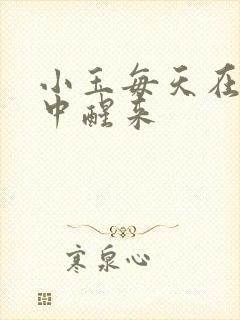 小玉每天在
中醒来
寒泉心